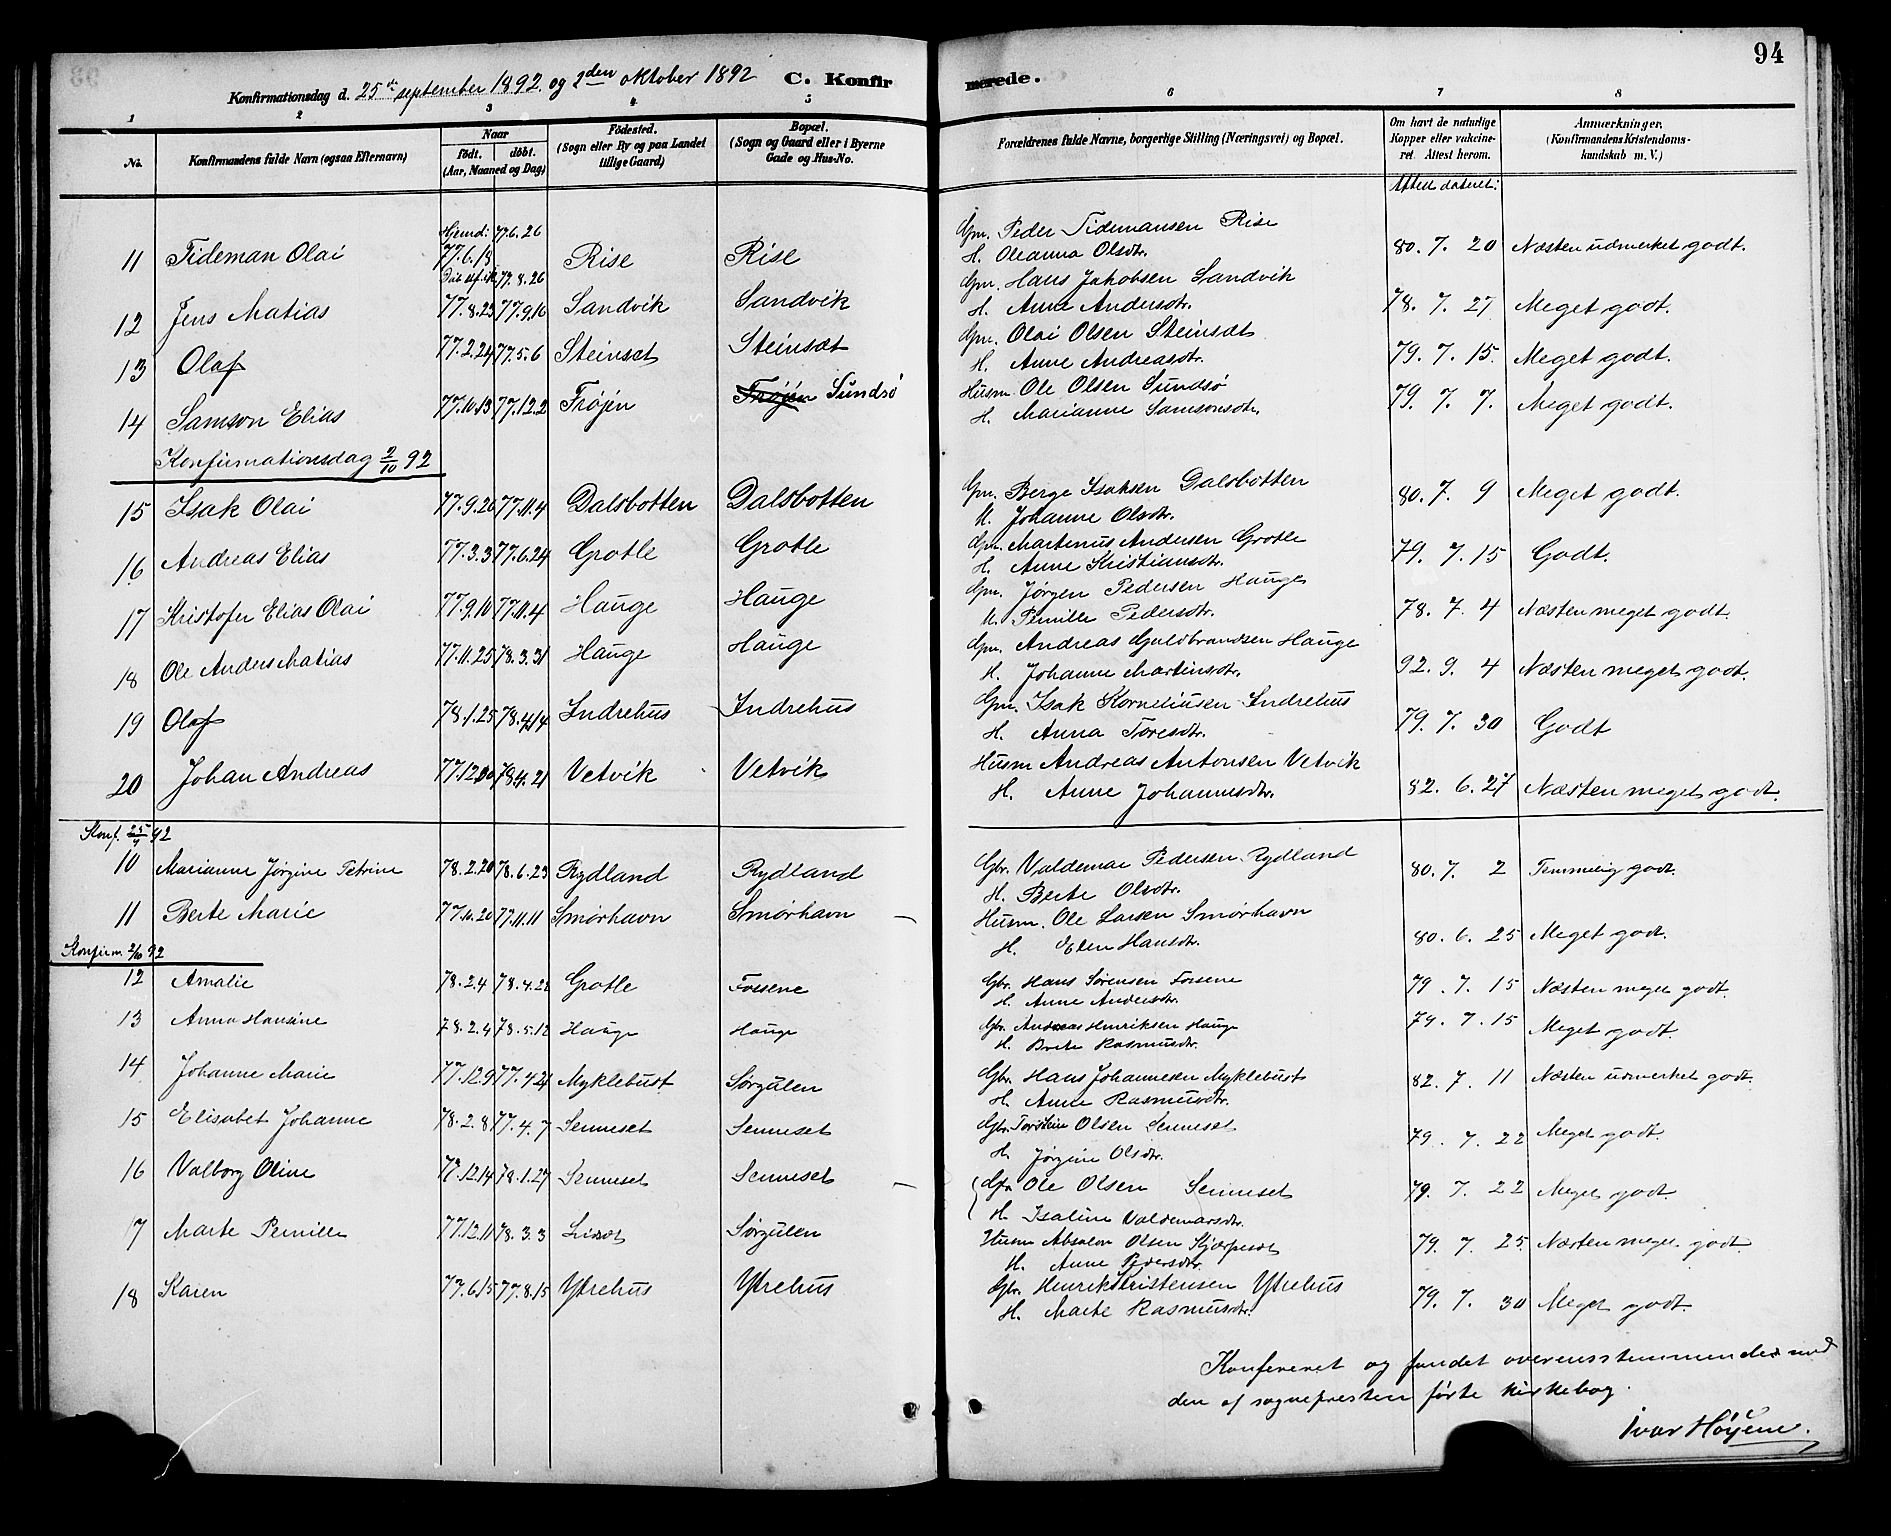 94
Konfirmationsdag d. 25de september 1892 og 2den oktober 1892 C. Konfirmerede.
1 2 3 4 5 6 7 8
No. Konfirmandens fulde Navn (ogsaa Efternavn) Naar født. døbt. (Aar, Maaned og Dag) Fødested. (Sogn eller By og paa Landet tillige Gaard) Bopæl. (Sogn og Gaard eller i Byerne Gade og Hus-No. Forældrenes fulde Navne, borgerlige Stilling (Næringsvei) og Bopæl. Om havt de naturlige Kopper eller vakcineret. Attest herom. Anmærkninger. (Konfirmandens Kristendomskundskab m. V.)
Attest dateret:
Hjemd: 77.6.26 Gm. Peder Tidemansen Rise
11 Tideman Olai 77.6.18 77.8.26 Rise Rise H. Oleanna Olsdtr. 80. 7. 20 Næsten udmerket godt.
Gm. Hans Jakobsen Sandvik
12 Jens Matias 77.8.23 77.9.16 Sandvik Sandvik H. Anne Andersdtr. 78. 7. 27 Meget godt.
Gm. Olai Olsen Steinsæt
13 Olaf 77.2.24 77.5.6 Steinset Steinsæt H. Anne Andreasdtr. 79. 7. 15. Meget godt.
Husm Ole Olsen Sundsø
14 Samson Elias 77.10.13 77.12.2 Frøjen Frøjen Sundsø H. Marianne Samsonsdtr. 79. 7. 7. Meget godt.
Konfirmationsdag 2/10 92
Gm. Berge Isaksen Dalsbotten
15 Isak Olai 77.9.26 77.11.4 Dalsbotten Dalsbotten H. Johanne Olsdtr. 80. 7. 9 Meget godt.
Gm. Martinus Andersen Grotle
16 Andreas Elias 77.3.3 77.6.24 Grotle Grotle H. Anne Kristiansdtr. 79. 7. 15 Godt.
Gm. Jørgen Pedersen Hauge
17 Kristofer Elias Olai 77.9.10 77.11.4 Hauge Hauge H. Pernille Pedersdtr. 78. 7. 4 Næsten meget godt.
Gm. Andreas Guldbrandsen Hauge
18 Ole Anders Matias 77.11.25 78.3.31 Hauge Hauge H. Johanne Martinsdtr. 92. 9. 4 Næsten meget godt.
Gm. Isak Korneliusen Indrehus
19 Olaf 78.1.25 78.4.14 Indrehus Indrehus H. Anna Toresdtr. 79. 7. 30 Godt
Husm Andreas Antonsen Vetvik
20 Johan Andreas 77.12.20 78.4.21 Vetvik Vetvik H. Anne Johannesdtr. 82. 6. 27 Næsten meget godt.
Konf. 25/9 92
Gbr. Valdemar Pedersen Rydland
10 Marianne Jørgine Petrine 78.2.20 78.6.23 Rydland Rydland H. Berte Olsdtr. 80. 7. 2 Temmelig godt.
Husm. Ole Larsen Smørhavn
11 Berte Marie 77.10.20 77.11.11 Smørhavn Smørhavn H. Elen Hansdtr. 80. 6. 25 Meget godt.
Konfirm. 2/10 92
Gbr. Hans Sørensen Fossene
12 Amalie 78.2.4 78.4.22 Grotle Fossene H. Anne Andersdtr. 79. 7. 15 Næsten meget godt.
Gbr. Andreas Henriksen Hauge
13 Anna Hansine 78.2.4 78.5.12 Hauge Hauge H. Brite Rasmusdtr. 79. 7. 15 Meget godt.
Gbr. Hans Johannesen Myklebust
14 Johanne Marie 77.12.9 77.4.21 Myklebust Sørgulen H. Anne Rasmusdtr. 82. 7. 11 Næsten udmerket godt.
Gbr. Torstein Olsen Senneset
15 Elisabet Johanne 78.2.8 77.4.7 Senneset Senneset H. Jørgine Olsdtr. 79. 7. 22 Meget godt.
Gbr. Ole Olsen Senneset
16 Valborg Oline 77.12.14 78.1.27 Senneset Senneset H. Isaline Valdemarsdtr. 79. 7. 22 Meget godt.
Husm Absalon Olsen
17 Marte Pernille 77.12.11 78.3.3 Sørgulen H. Anne Pedersdtr. 79. 7. 25. Næsten meget godt.
Gbr. Henrik Kristensen Ytrehus
18 Karen 77.6.15 77.8.15 Ytrehus Ytrehus H. Marte Rasmusdtr. 79. 7. 30 Meget godt.
Konfereret og fundet overensstemmende med
den af sognepresten førte kirkebog.
Ivar Höyem.